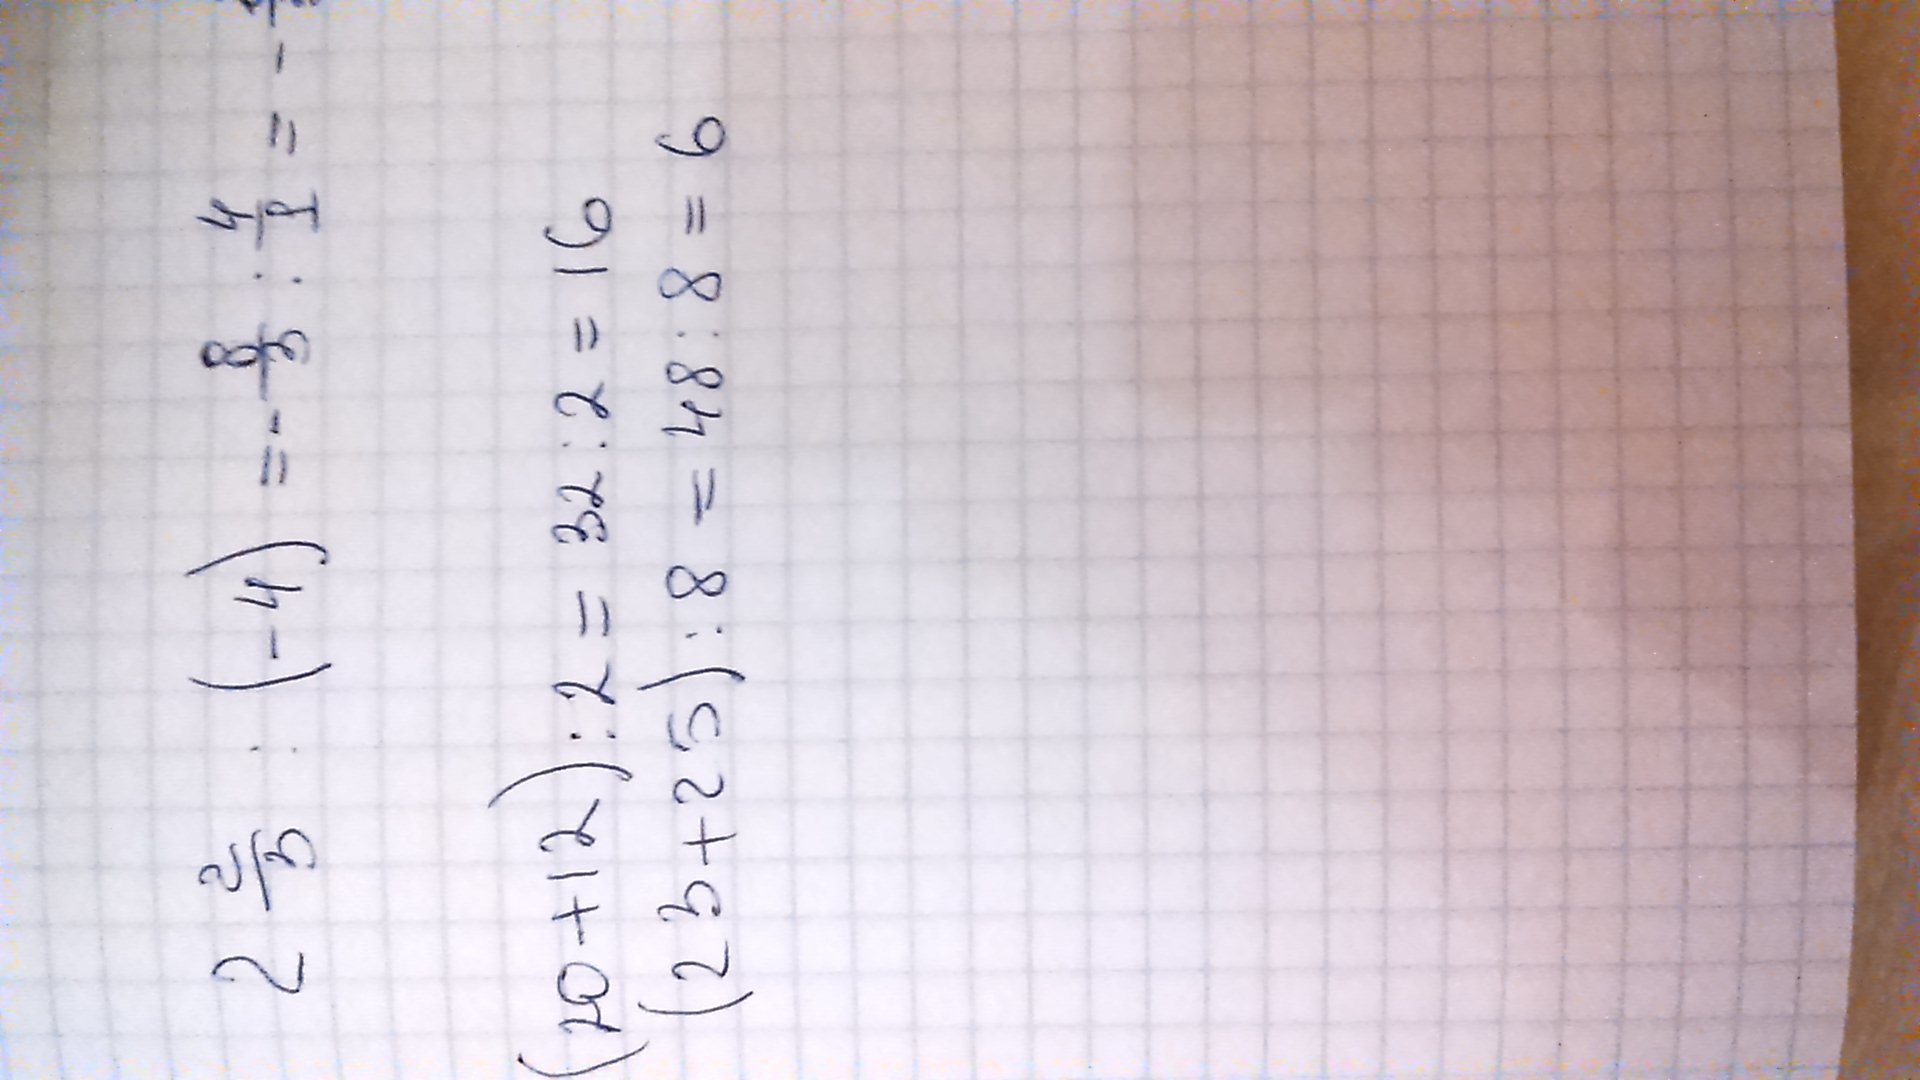 2 2/3 : (-4) = - 8/3 : 4/1 = -
(20+12):2 = 32:2 = 16
(23+25):8 = 48:8 = 6